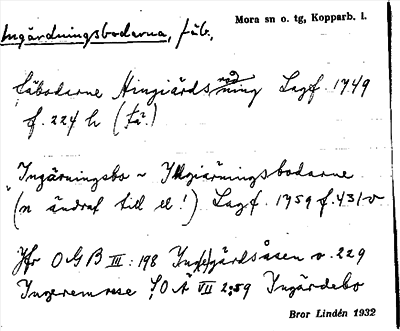 Ingärdningsbodarna, fäb.,
Mora sn o. tg, Kopparb. l.
fäbodarne Hingiärdsning Lagf. 1749
f. 224 h (fä?)
Ingärningsbo ~ Illgiärningsbodarne
(n ändrat till ll!) Lagf. 1759 f. 431 v
Jfr OGB III: 198 Ing(e)gärdsåsen o. 229
Ingeremosse, SOÄ VII 2:59 Ingärdebo
Bror Lindén 1932